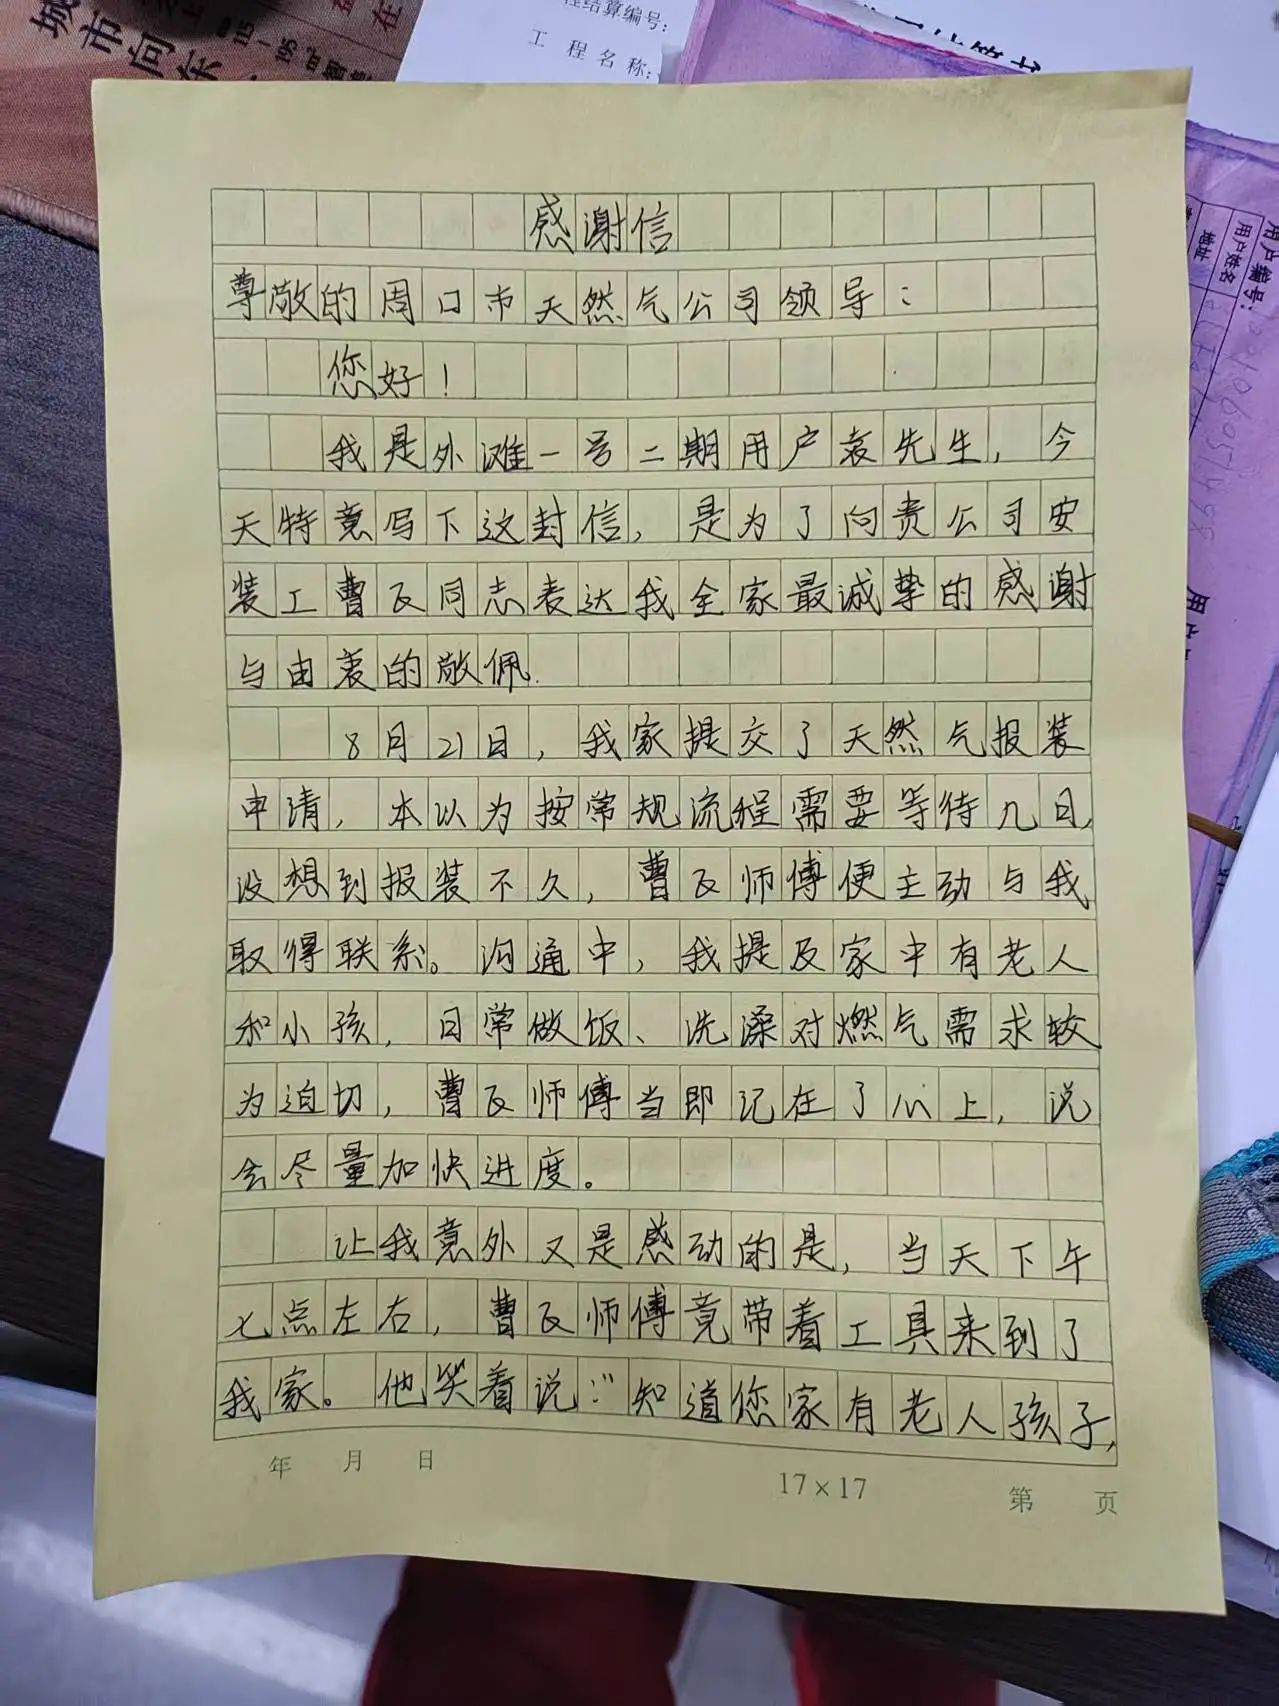 程结算编号:
工 程 名 称:
城市向东
用户编号:
用户姓名
地址
感谢信
尊敬的周口市天然气公司领导：
您好！
我是外滩一号二期用户袁先生，今
天特意写下这封信，是为了向贵公司安
装工曹瓦同志表达我全家最诚挚的感谢
与由衷的敬佩.
8月21日，我家提交了天然气报装
申请，本以为按常规流程需要等待几日,
没想到报装不久，曹瓦师傅便主动与我
取得联系。沟通中，我提及家中有老人
和小孩，日常做饭、洗澡对燃气需求较
为迫切，曹瓦师傅当即记在了心上，说
会尽量加快进度。
让我意外又是感动的是，当天下午
七点左右，曹瓦师傅竟带着工具来到了
我家。他笑着说：“知道您家有老人孩子,
年 月 日
17×17
第 页